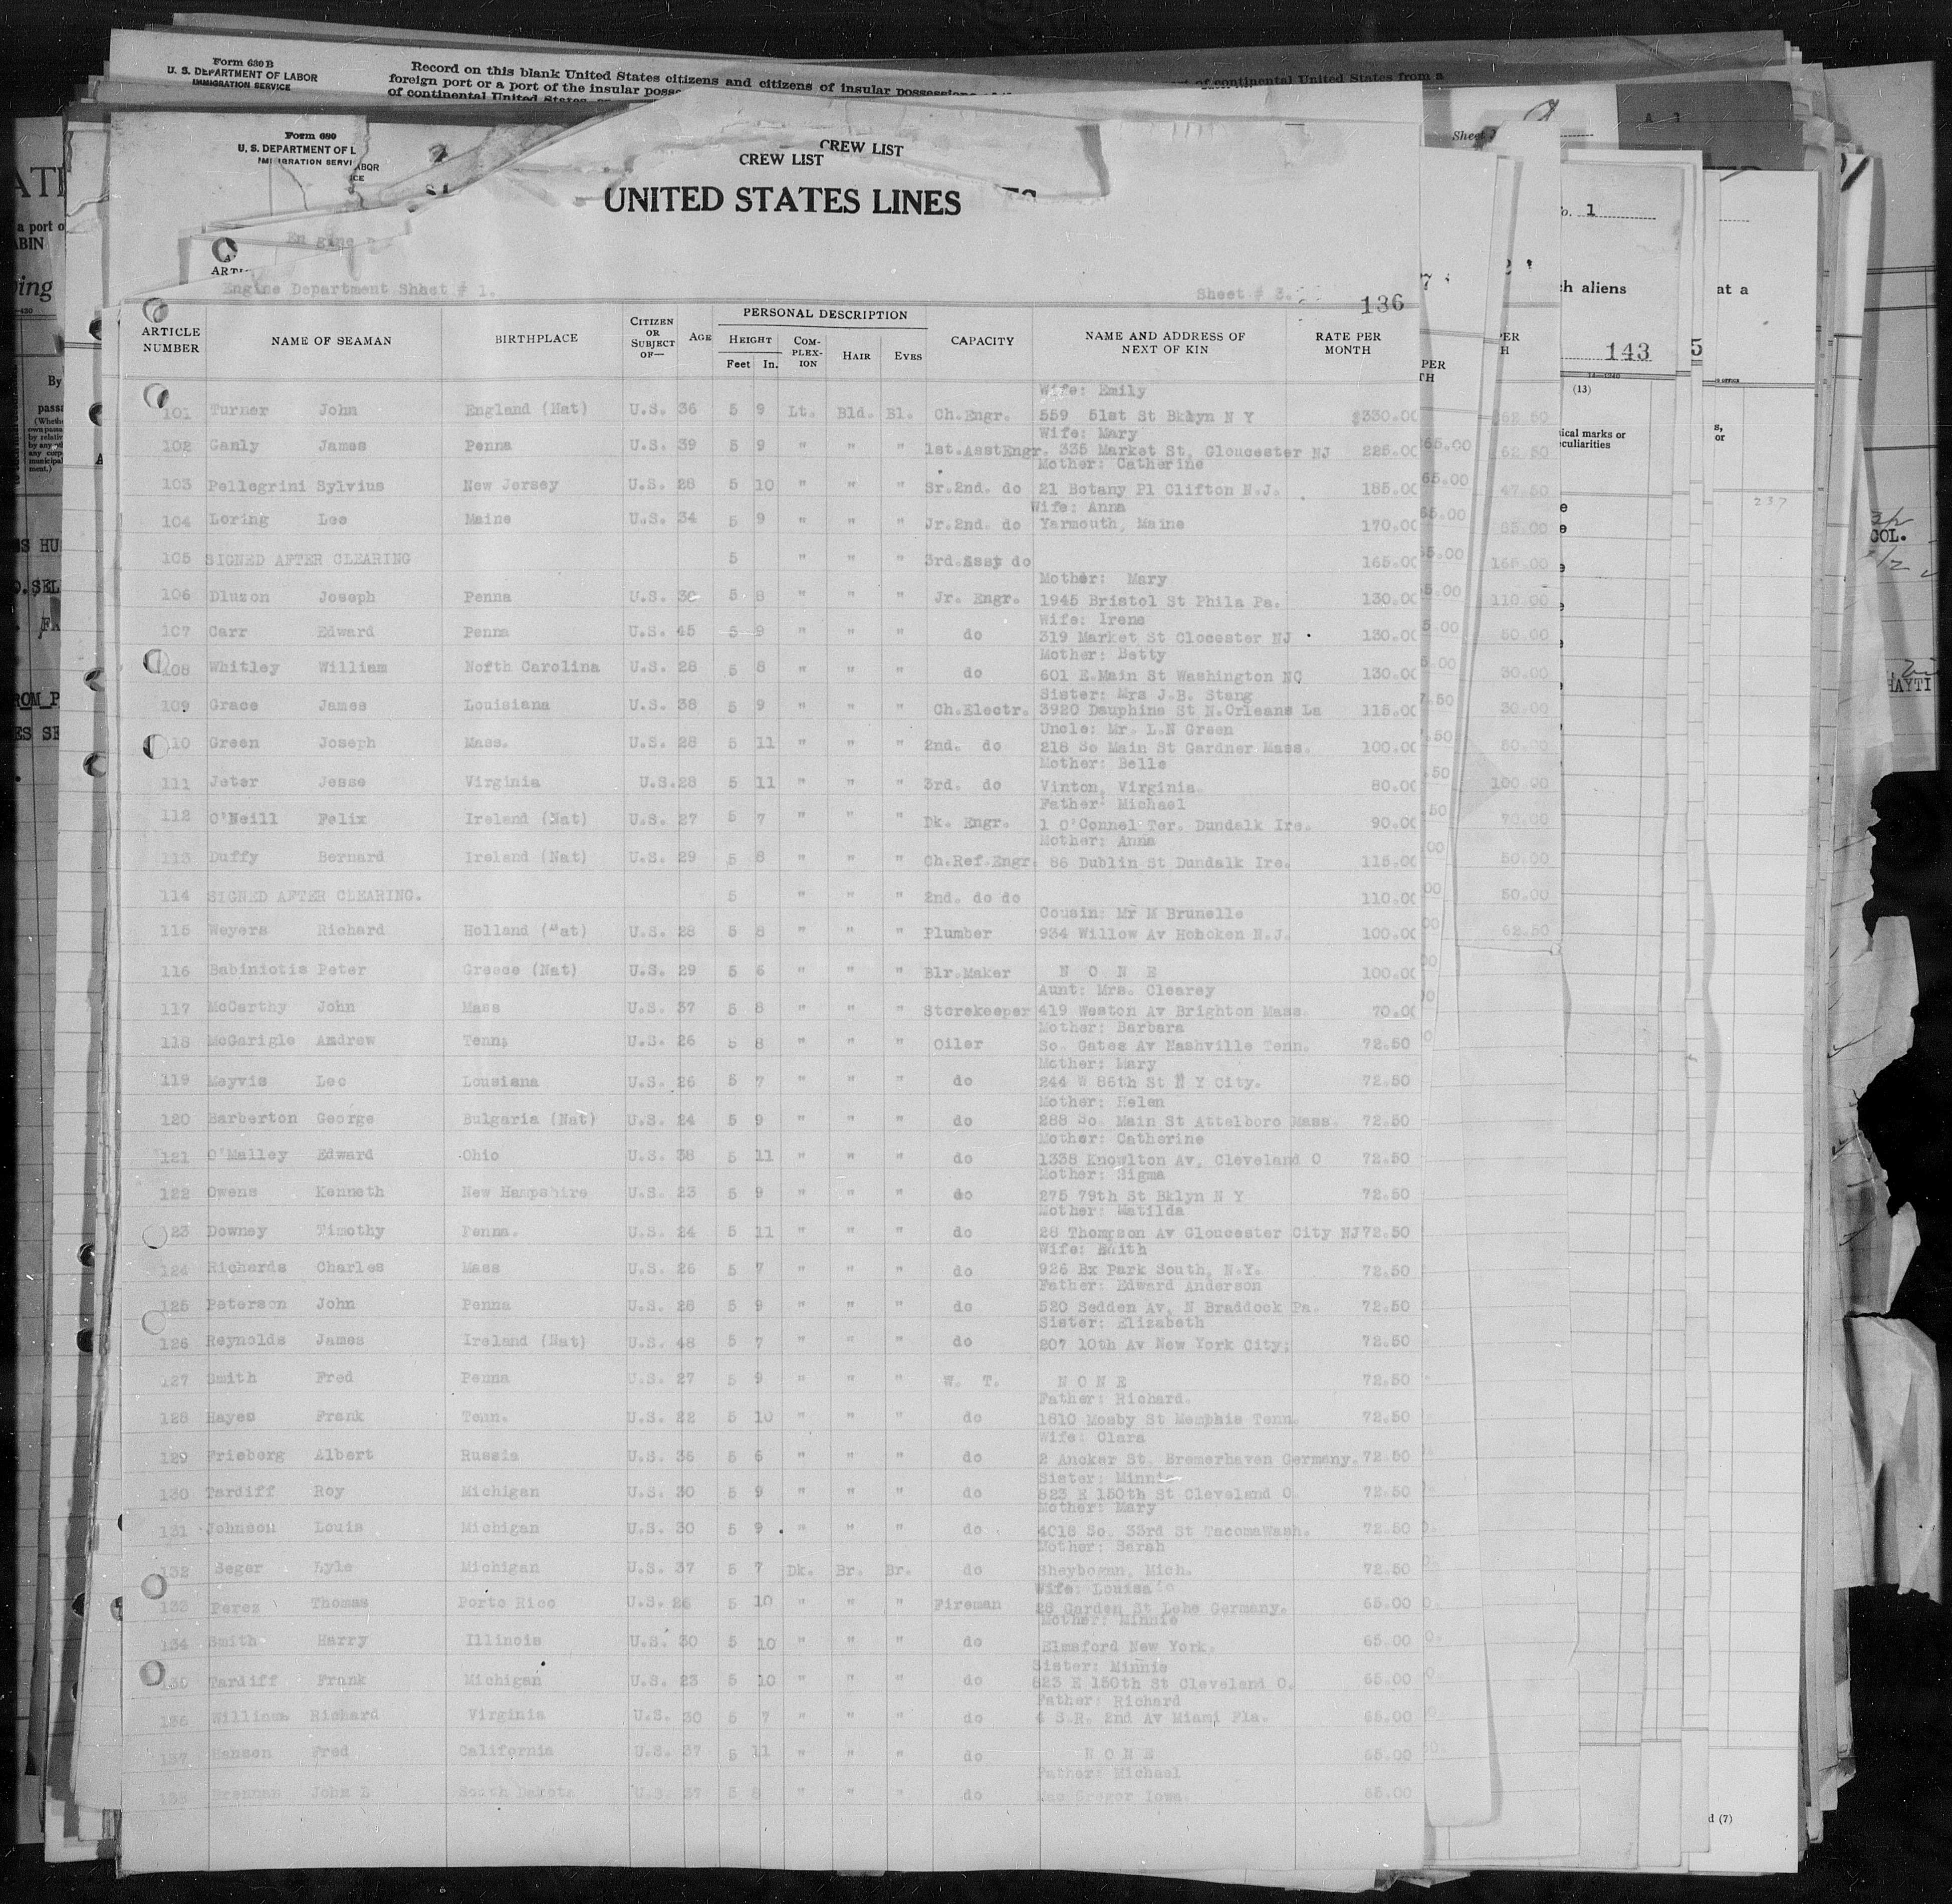 Form 630 B
U. S. DEPARTMENT OF LABOR
IMMIGRATION SERVICE
Record on this blank United States citizens and citizens of insular possessions
foreign port or a port of the insular
of continental United States
of continental United States from a
Form 689
U. S. DEPARTMENT OF L
IMMIGRATION SERVI
ABOR
ICE
CREW LIST
CREW LIST
UNITED STATES LINES
Engine
Engine Department Sheet # 1.
Sheet # 3.
136
ARTICLE NUMBER NAME OF SEAMAN BIRTHPLACE CITIZEN OR SUBJECT OF— AGE PERSONAL DESCRIPTION HEIGHT Feet In. COM-PLEX-ION HAIR EYES CAPACITY NAME AND ADDRESS OF NEXT OF KIN RATE PER MONTH
Wife: Emily
101 Turner John England (Nat) U.S. 36 5 9 Lt. Bld. Bl. Ch.Engr. 559 51st St Bklyn N Y $330.00
Wife: Mary
102 Ganly James Penna U.S. 39 5 9 " " " 1st.AsstEngr. 335 Market St, Gloucester NJ 225.00
Mother: Catherine
103 Pellegrini Sylvius New Jersey U.S. 28 5 10 " " " Sr.2nd. do 21 Botany Pl Clifton N.J. 185.00
Wife: Anna
104 Loring Leo Maine U.S. 34 5 9 " " " Jr.2nd. do Yarmouth, Maine 170.00
105 SIGNED AFTER CLEARING 5 " " " 3rd.Asst do 165.00
Mother: Mary
106 Dluzon Joseph Penna U.S. 30 5 8 " " " Jr. Engr. 1945 Bristol St Phila Pa. 130.00
Wife: Irene
107 Carr Edward Penna U.S. 45 5 9 " " " do 319 Market St Glocester NJ 130.00
Mother: Betty
108 Whitley William North Carolina U.S. 28 5 8 " " " do 601 E.Main St Washington NC 130.00
Sister: Mrs J.B. Stang
109 Grace James Louisiana U.S. 38 5 9 " " " Ch.Electr. 3920 Dauphine St N.Orleans La 115.00
Uncle: Mr. L.N Green
10 Green Joseph Mass. U.S. 28 5 11 " " " 2nd. do 218 So Main St Gardner Mass. 100.00
Mother: Belle
111 Jeter Jesse Virginia U.S.28 5 11 " " " 3rd. do Vinton, Virginia. 80.00
Father: Michael
112 O'Neill Felix Ireland (Nat) U.S. 27 5 7 " " " Dk. Engr. 1 O'Connel Ter. Dundalk Ire. 90.00
Mother: Anna
113 Duffy Bernard Ireland (Nat) U.S. 29 5 8 " " " Ch.Ref.Engr. 86 Dublin St Dundalk Ire. 115.00
114 SIGNED AFTER CLEARING. 5 " " " 2nd. do do 110.00
Cousin: Mr M Brunelle
115 Weyers Richard Holland (Nat) U.S. 28 5 8 " " " Plumber 934 Willow Av Hoboken N.J. 100.00
116 Babiniotis Peter Greece (Nat) U.S. 29 5 6 " " " Blr.Maker N O N E 100.00
Aunt: Mrs. Clearey
117 McCarthy John Mass U.S. 37 5 8 " " " Storekeeper 419 Weston Av Brighton Mass. 70.00
Mother: Barbara
118 McGarigle Andrew Tenn. U.S. 26 5 8 " " " Oiler So. Gates Av Nashville Tenn. 72.50
Mother: Mary
119 Mayvis Leo Lousiana U.S. 26 5 7 " " " do 244 W 86th St N Y City. 72.50
Mother: Helen
120 Barberton George Bulgaria (Nat) U.S. 24 5 9 " " " do 288 So. Main St Attelboro Mass. 72.50
Mother: Catherine
121 O'Malley Edward Ohio U.S. 38 5 11 " " " do 1338 Knowlton Av, Cleveland O 72.50
Mother: Sigma
122 Owens Kenneth New Hampshire U.S. 23 5 9 " " " do 275 79th St Bklyn N Y 72.50
Mother: Matilda
23 Downey Timothy Penna. U.S. 24 5 11 " " " do 28 Thompson Av Gloucester City NJ 72.50
Wife: Edith
124 Richards Charles Mass U.S. 26 5 7 " " " do 926 Bx Park South, N.Y. 72.50
Father: Edward Anderson
125 Peterson John Penna U.S. 28 5 9 " " " do 520 Sedden Av, N Braddock Pa. 72.50
Sister: Elizabeth
126 Reynolds James Ireland (Nat) U.S. 48 5 7 " " " do 207 10th Av New York City. 72.50
127 Smith Fred Penna U.S. 27 5 9 " " " W. T. N O N E 72.50
Father: Richard.
128 Hayes Frank Tenn. U.S. 22 5 10 " " " do 1810 Mosby St Memphis Tenn. 72.50
Wife: Clara
129 Frieberg Albert Russia U.S. 35 5 6 " " " do 2 Ancker St. Bremerhaven Germany. 72.50
Sister: Minnie
130 Tardiff Roy Michigan U.S. 30 5 9 " " " do 823 E 150th St Cleveland O. 72.50
Mother: Mary
131 Johnson Louis Michigan U.S. 30 5 9 " " " do 4018 So. 33rd St TacomaWash. 72.50
Mother: Sarah
132 Seger Lyle Michigan U.S. 37 5 7 Dk. Br. Br. do Sheybogan, Mich. 72.50
Wife: Louisa
133 Peres Thomas Porto Rico U.S. 26 5 10 " " " Fireman 28 Garden St Lehe Germany. 65.00
Mother: Minnie
134 Smith Harry Illinois U.S. 30 5 10 " " " do Elmsford New York. 65.00
Sister: Minnie
135 Tardiff Frank Michigan U.S. 23 5 10 " " " do 823 E 150th St Cleveland O. 65.00
Father: Richard
136 Williams Richard Virginia U.S. 30 5 7 " " " do 4 S.R. 2nd Av Miami Fla. 65.00
137 Hansen Fred California U.S. 37 5 11 " " " do N O N E 65.00
Father: Michael
138 Brennan John South Dakota U.S. 37 5 8 " " " do Mac Gregor Iowa. 65.00
1
ch aliens
at a
143
5
(13)
ical marks or
eculiarities
237
COL.
HAYTI
d (7)